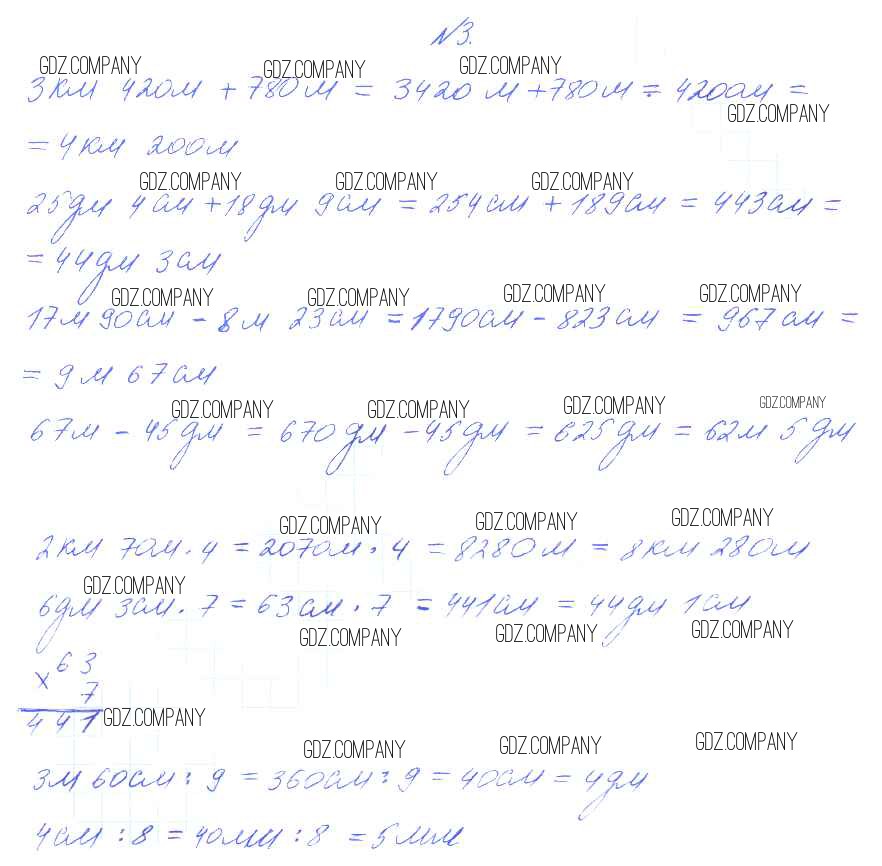 №3.
GDZ.COMPANY GDZ.COMPANY GDZ.COMPANY
3км 420м + 780м = 3420м + 780м = 4200м =
GDZ.COMPANY
= 4км 200м
GDZ.COMPANY GDZ.COMPANY GDZ.COMPANY
25дм 4см + 18дм 9см = 254см + 189см = 443см =
= 44дм 3см
GDZ.COMPANY GDZ.COMPANY GDZ.COMPANY GDZ.COMPANY
17м 90см - 8м 23см = 1790см - 823см = 967см =
= 9м 67см
GDZ.COMPANY GDZ.COMPANY GDZ.COMPANY GDZ.COMPANY
67м - 45дм = 670дм - 45дм = 625дм = 62м 5дм
GDZ.COMPANY GDZ.COMPANY GDZ.COMPANY
2км 70м · 4 = 2070м · 4 = 8280м = 8км 280м
GDZ.COMPANY
6дм 3см · 7 = 63см · 7 = 441см = 44дм 1см
GDZ.COMPANY GDZ.COMPANY GDZ.COMPANY
× 63
7
441 GDZ.COMPANY
GDZ.COMPANY GDZ.COMPANY GDZ.COMPANY
3м 60см : 9 = 360см : 9 = 40см = 4дм
4см : 8 = 40мм : 8 = 5мм